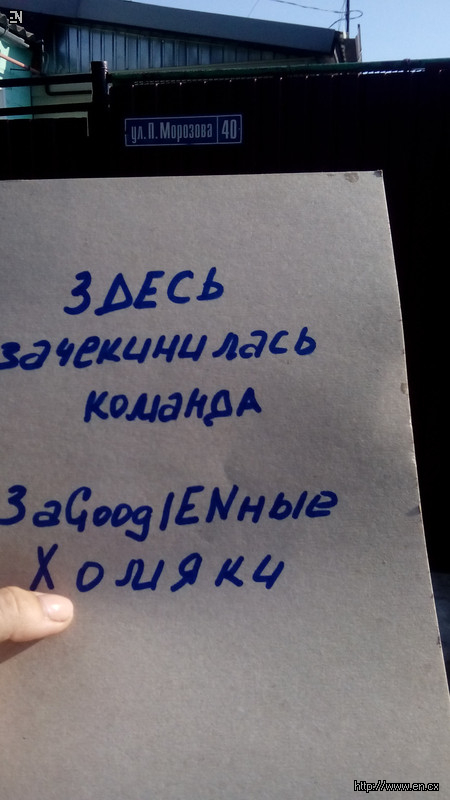 EN
ул. П. Морозова 40
ЗДЕСЬ
зачекинилась
команда
ЗаGooglENные
Хомяки
http://www.en.cx